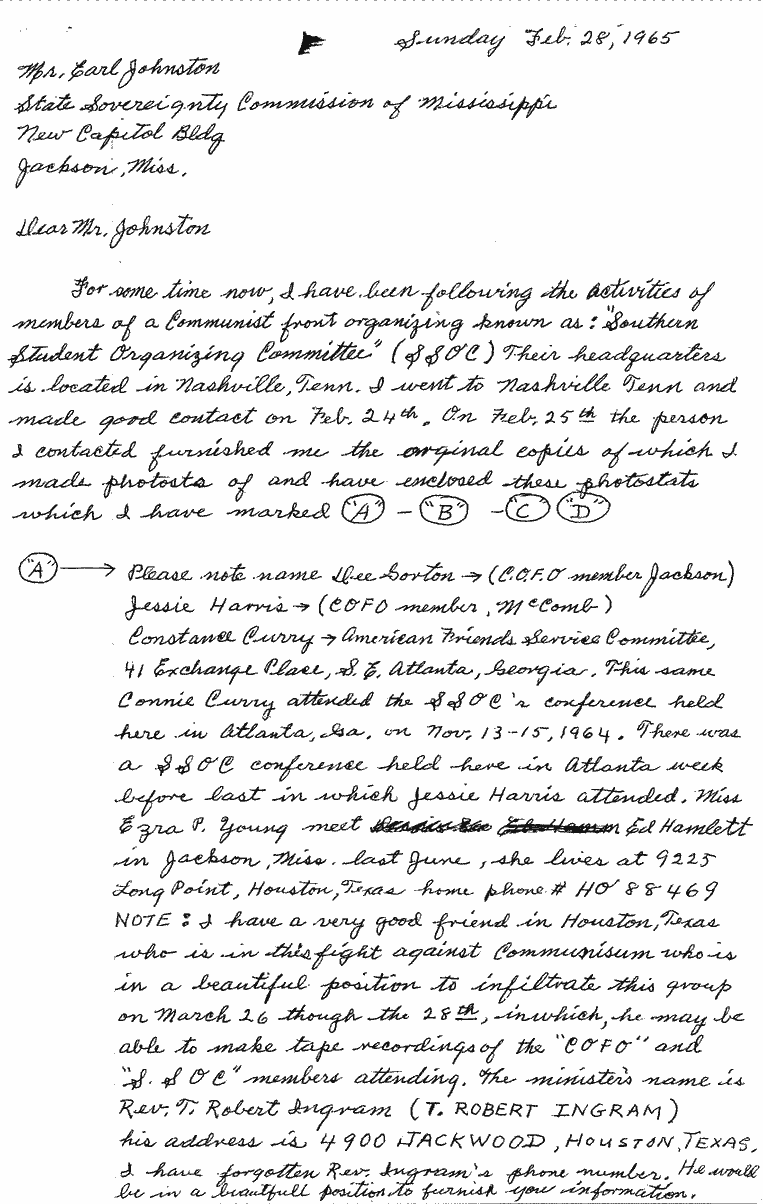 Sunday Feb. 28, 1965
Mr. Earl Johnston
State Sovereignty Commission of Mississippi
New Capitol Bldg
Jackson, Miss.
Dear Mr. Johnston
For some time now, I have been following the activities of
members of a Communist front organizing known as: "Southern
Student Organizing Committee" (SSOC) Their headquarters
is located in Nashville, Tenn. I went to Nashville Tenn and
made good contact on Feb. 24th. On Feb. 25th the person
I contacted furnished me the orginal copies of which I
made photosts of and have enclosed these photostats
which I have marked "A" - "B" - "C" "D"
"A" → Please note name Dee Gorton → (C.O.F.O member Jackson)
Jessie Harris → (COFO member, McComb)
Constance Curry → American Friends Service Committee,
41 Exchange Place, S.E. Atlanta, Georgia. This same
Connie Curry attended the SSOC's conference held
here in Atlanta, Ga. on Nov. 13-15, 1964. There was
a SSOC conference held here in Atlanta week
before last in which Jessie Harris attended. Miss
Ezra P. Young meet Ed Hamlett
in Jackson, Miss. last June, she lives at 9225
Long Point, Houston, Texas home phone # HO 88469
NOTE: I have a very good friend in Houston, Texas
who is in this fight against Communisum who is
in a beautiful position to infiltrate this group
on March 26 though the 28th, in which, he may be
able to make tape recordings of the "COFO" and
"S. SOC" members attending. The minister's name is
Rev. T. Robert Ingram (T. ROBERT INGRAM)
his address is 4900 JACKWOOD, HOUSTON, TEXAS.
I have forgotten Rev. Ingram's phone number. He would
be in a beautfull position to furnish you information.